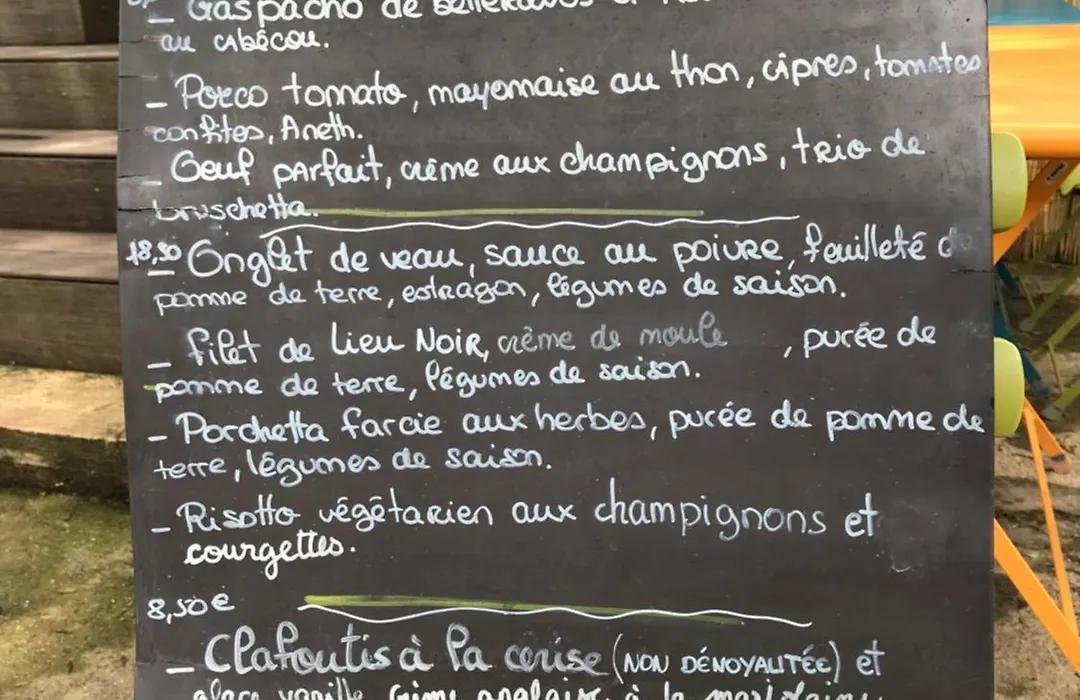 - Gaspacho de betteraves et
au cabécou.
- Porco tomato, mayomaise au thon, cipres, tomates
confites, Aneth.
- Oeuf parfait, crème aux champignons, trio de
bruschetta.
18,50
- Onglet de veau, sauce au poivre, feuilleté de
pomme de terre, estragon, légumes de saison.
- filet de Lieu Noir, crème de moule , purée de
pomme de terre, légumes de saison.
- Porchetta farcie aux herbes, purée de pomme de
terre, légumes de saison.
- Risotto végétarien aux champignons et
courgettes.
8,50€
- Clafoutis à la cerise (NON DÉNOYAUTÉE) et
glace vanille, crème anglaise à la